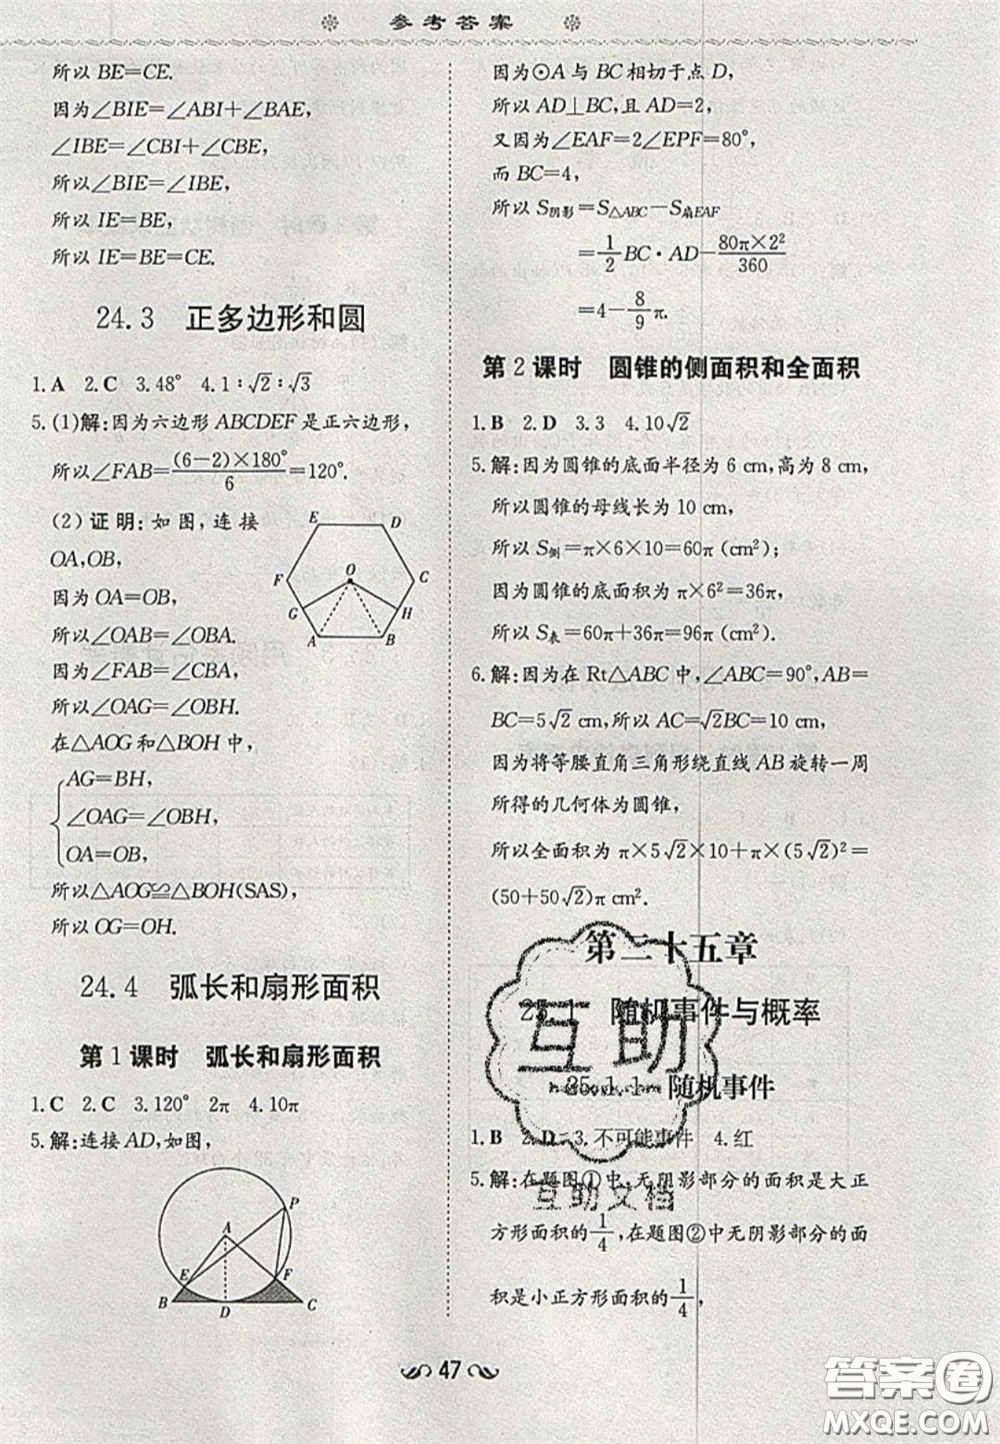 参考答案
所以 BE=CE.
因为∠BIE=∠ABI+∠BAE,
∠IBE=∠CBI+∠CBE,
所以∠BIE=∠IBE,
所以 IE=BE,
所以 IE=BE=CE.
24.3 正多边形和圆
1.A 2.C 3.48° 4.1∶√2∶√3
5.(1)解:因为六边形 ABCDEF 是正六边形,
所以∠FAB=(6-2)×180°/6=120°.
(2)证明:如图,连接
OA,OB,
因为 OA=OB,
所以∠OAB=∠OBA.
因为∠FAB=∠CBA,
所以∠OAG=∠OBH.
在△AOG 和△BOH 中,
AG=BH,
∠OAG=∠OBH,
OA=OB,
所以△AOG≌△BOH(SAS),
所以 OG=OH.
E D
F O C
G H
A B
24.4 弧长和扇形面积
第 1 课时 弧长和扇形面积
1.C 2.C 3.120° 2π 4.10π
5.解:连接 AD,如图,
P
A
E F
B D C
因为⊙A 与 BC 相切于点 D,
所以 AD⊥BC,且 AD=2,
又因为∠EAF=2∠EPF=80°,
而 BC=4,
所以 S阴影=S△ABC-S扇EAF
=1/2 BC·AD-80π×2²/360
=4-8/9 π.
第 2 课时 圆锥的侧面积和全面积
1.B 2.D 3.3 4.10√2
5.解:因为圆锥的底面半径为 6 cm,高为 8 cm,
所以圆锥的母线长为 10 cm,
所以 S侧=π×6×10=60π(cm²);
因为圆锥的底面积为 π×6²=36π,
所以 S表=60π+36π=96π(cm²);
6.解:因为在 Rt△ABC 中,∠C=90°,AB=
BC=5√2 cm,所以 AC=√2BC=10 cm,
因为将等腰直角三角形绕直线 AB 旋转一周
所得的几何体为圆锥,
所以全面积为 π×5√2×10+π×(5√2)²=
(50+50√2)π cm².
第二十五章
随机事件与概率
25.1.1 随机事件
1.B 2.D 3.不可能事件 4.红
5.解:在题图①中,无阴影部分的面积是大正
方形面积的1/4,在题图②中无阴影部分的面
积是小正方形面积的1/4,
互助
互助文档
47
答案圈
MXQE.COM